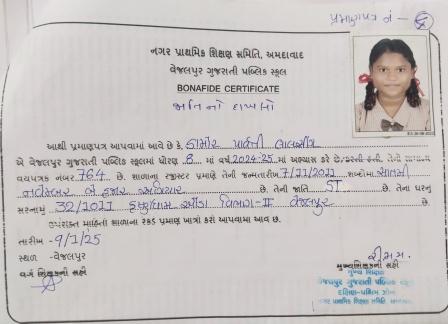 પ્રમાણપત્ર નં - 6
નગર પ્રાથમિક શિક્ષણ સમિતિ, અમદાવાદ
વેજલપુર ગુજરાતી પબ્લિક સ્કૂલ
BONAFIDE CERTIFICATE
જાતિ નો દાખલો
આથી પ્રમાણપત્ર આપવામાં આવે છે કે, ડામોર પાર્વતી
એ વેજલપુર ગુજરાતી પબ્લિક સ્કૂલમાં ધોરણ 8 માં વર્ષ 2024-25 માં અભ્યાસ કરે છે/કરતી હતી. તેનો
વયપત્રક નંબર 764 છે. શાળાના રજીસ્ટર પ્રમાણે તેની જન્મતારીખ 7/11/2011 શબ્દોમાં સાતમી
નવેમ્બર બે હજાર અગિયાર છે. તેની જાતિ ST છે. તેના ઘરનું
સરનામું 32/1011 વિભાગ-II વેજલપુર છે.
ઉપરોક્ત માહિતી શાળાના રેકર્ડ પ્રમાણે ખાત્રી કરી આપવામાં આવે છે.
તારીખ -9/1/25
સ્થળ -વેજલપુર
વર્ગ શિક્ષકની સહી
મુખ્યશિક્ષકની સહી
મુખ્ય શિક્ષક
વેજલપુર ગુજરાતી પબ્લિક સ્કૂલ
દક્ષિણ-પશ્ચિમ ઝોન
નગર પ્રાથમિક શિક્ષણ સમિતિ